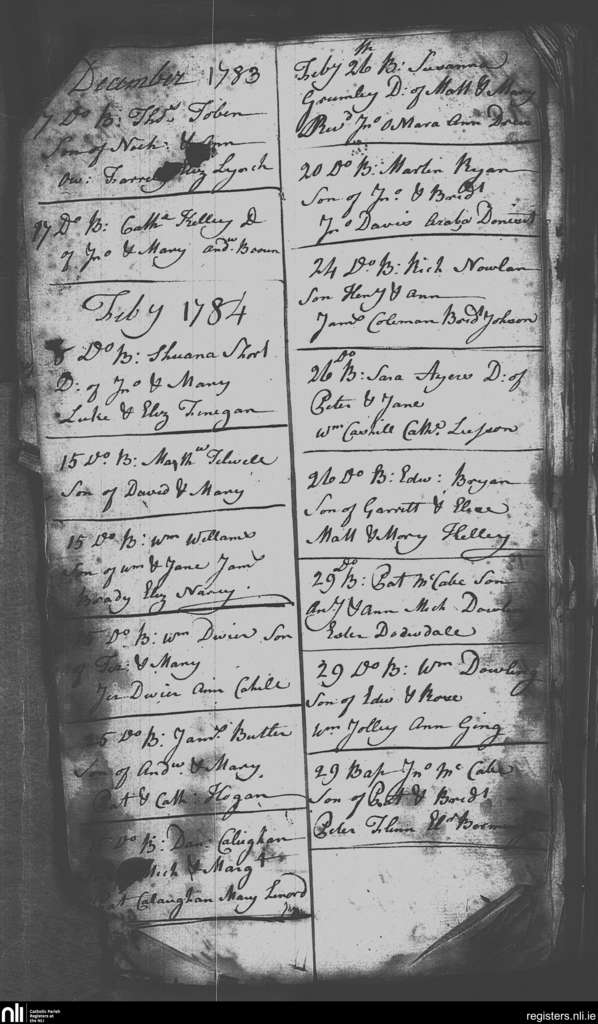 December 1783
17 Do B: Thos Toben
Son of Nich: & Ann
Ow: Farre Eliz Lynch
17 Do B: Cathe Kelley D
of Jno & Mary Andw Brown
Feby 1784
8 Do B: Shuana Short
D: of Jno & Mary
Luke & Eliz Finegan
15 Do B: Tilwell
Son of David & Mary
15 Do B: Wm Willams
Son of Wm & Jane Jams
Brady Eliz Nancy
Do B: Wm Dwier Son
of Ter: & Mary
Jer Dwier Ann Cahill
25 Do B: Jams Butler
Son of Andw & Mary
Pat & Cath: Hogan
Do B: Dan: Calughan
Mich & Margt
Calaughan Mary Lenord
Feby 26th B: Susanna
Grumley D: of Matt & Mary
Revd Jno OMara Ann Drew
20 Do B: Martin Ryan
Son of Jno & Bridt
Jno Davis
24 Do B: Rich Nowlan
Son Heny & Ann
Jams Coleman Brid Johnson
26 Do B: Sara Ayers D: of
Peter & Jane
Wm Cathe
26 Do B: Edw: Bryan
Son of Garritt & Elize
Matt & Mary Kelley
29 Do B: Pat McCabe Son
Any & Ann Mich Dowl
Ester
29 Do B: Wm Dowling
Son of Edw & Rose
Wm Jolley Ann Ging
29 Bap Jno Mc Cabe
Son of Pat & Bridt
Peter Flinn
nli
Catholic Parish
Registers at
the NLI
registers.nli.ie